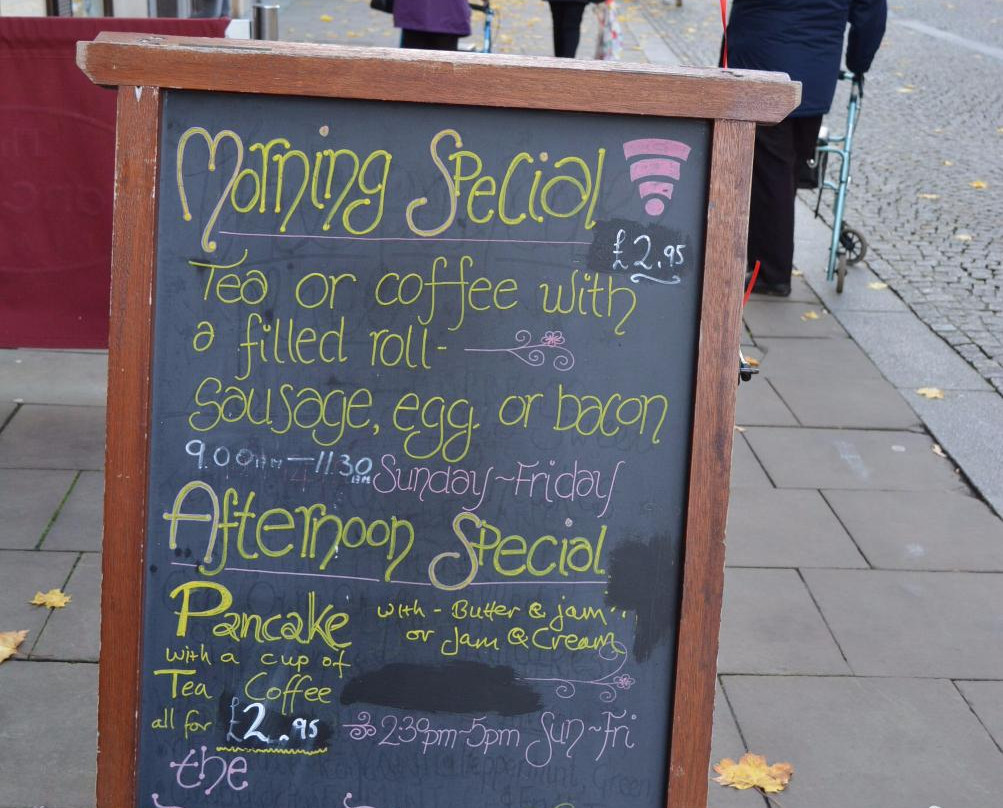 Morning Special
£2.95
Tea or coffee with
a filled roll-
sausage, egg. or bacon
9.00am—11.30am Sunday~Friday
Afternoon Special
Pancake with - Butter & jam
or Jam & Cream
with a cup of
Tea Coffee
all for £2.95 2:30pm-5pm Sun~Fri
the